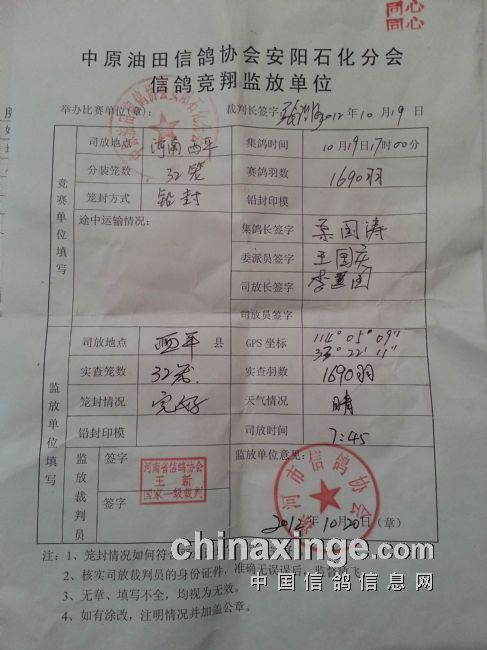 同心
同心
中原油田信鸽协会安阳石化分会
信鸽竞翔监放单位
举办比赛单位(章): 裁判长签字 2012年10月19日
竞赛单位填写
司放地点 河南西平 集鸽时间 10月19日17时00分
分装笼数 32笼 赛鸽羽数 1690羽
笼封方式 铅封 铅封印模
途中运输情况: 集鸽长签字
委派员签字 王国庆
司放长签字
司放员签字
监放单位填写
司放地点 西平县 GPS坐标 114° 05° 09"
33° 22' 11"
实查笼数 32笼 实查羽数 1690羽
笼封情况 完好 天气情况 晴
铅封印模 司放时间 7:45
监放裁判员 签字 监放单位意见:
河南省信鸽协会
王新
国家一级裁判
签字
河市信鸽协会
2012年10月20日(章)
注: 1、笼封情况如何符
2、核实司放裁判员的身份证件,准确无误后,监督放飞。
3、无章、填写不全,均视为无效。
4、如有涂改,注明情况并加盖公章。
chinaxinge.com
中国信鸽信息网